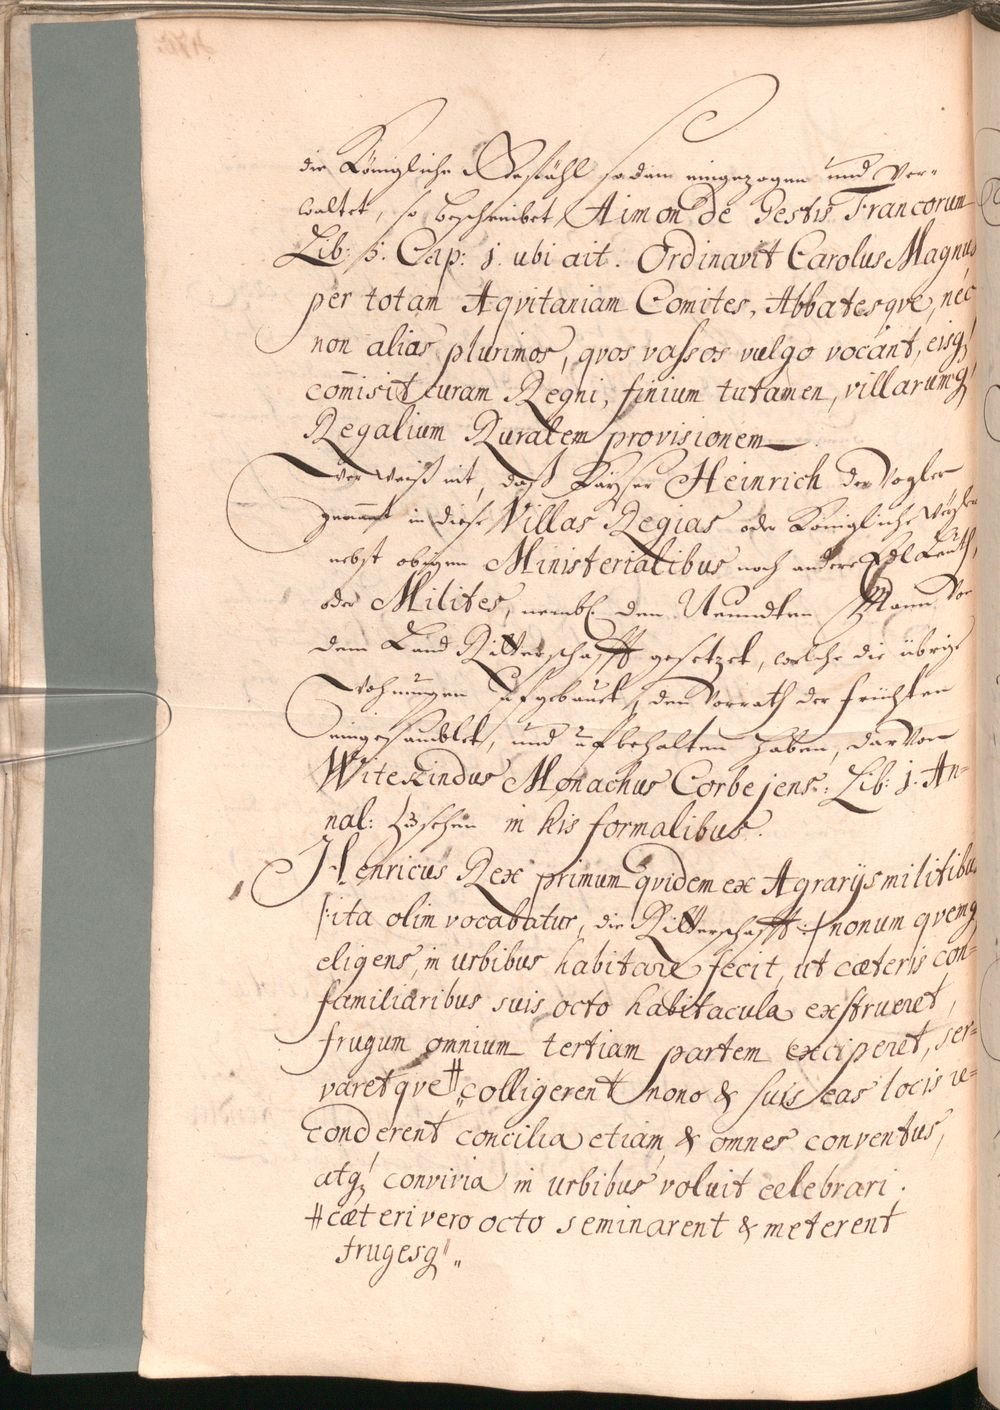 die Königliche Gefähl so dann eingezogen und ver-
waltet, so beschreibet Aimon de Gestis Francorum
Lib: 5. Cap: 1. ubi ait. Ordinavit Carolus Magnus
per totam Aqvitaniam Comites, Abbatesqve, nec
non alios plurimos, qvos vassos vulgo vocant, eisq
com̄isit curam Regni, finium tutamen, villarumq
Regalium Ruralem provisionem.
Wer weiß nit, daß Kayser Heinrich der Vogler
genannt in diese Villas Regias oder Königliche Weyler
nebst obigen Ministerialibus noch andere Edl Leuth,
oder Milites, nembl. den Neundten Mann von
dem Land Ritterschafft gesetzet, welche die übrige
Wohnungen ufgebauet, den Vorrath der früchten
eingesamblet, und ufbehalten haben, darvon
Witekindus Monachus Corbejens: Lib: 1. An-
nal: zu sehen in his formalibus.
Henricus Rex primum qvidem ex Agrarijs militibus
/:ita olim vocabatur, die Ritterschafft:/ nonum qvemq
eligens, in urbibus habitare fecit, ut cæteris con-
familiaribus suis octo habitacula exstrueret,
frugum omnium tertiam partem exciperet, ser-
varetqve # colligerent nono & suis eas locis re-
conderent concilia etiam & omnes conventus,
atq convivia in urbibus voluit celebrari.
# cæteri vero octo seminarent & meterent
frugesq „